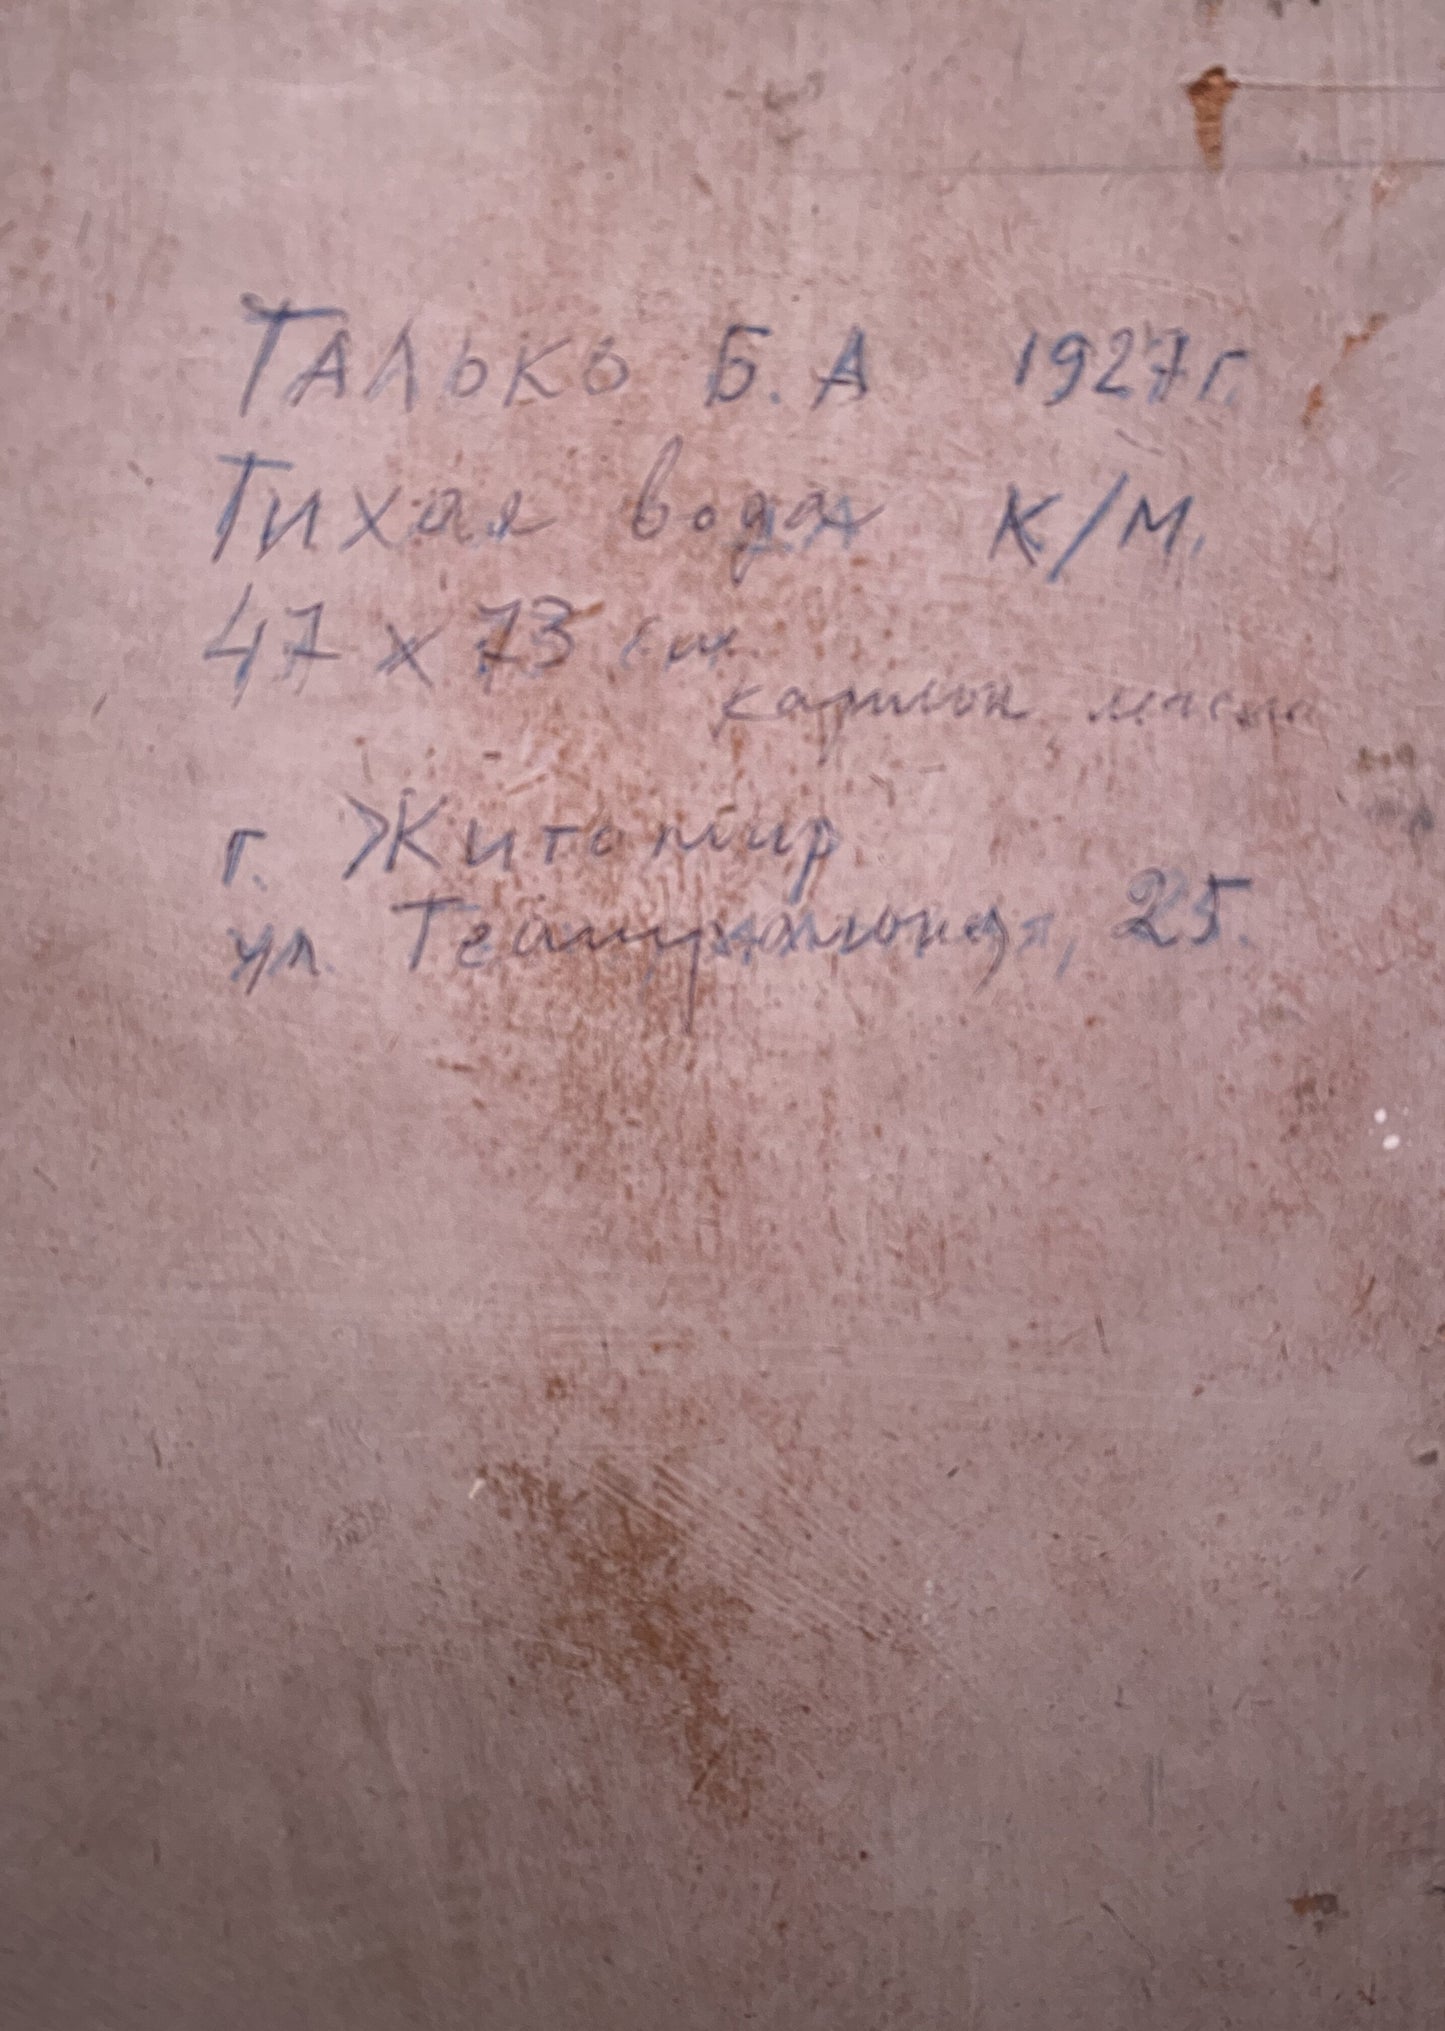 Талько Б.А 1927г.
Тихая вода К/М.
47 х 73 см
картон масло
г. Житомир
ул. Театральная, 25.